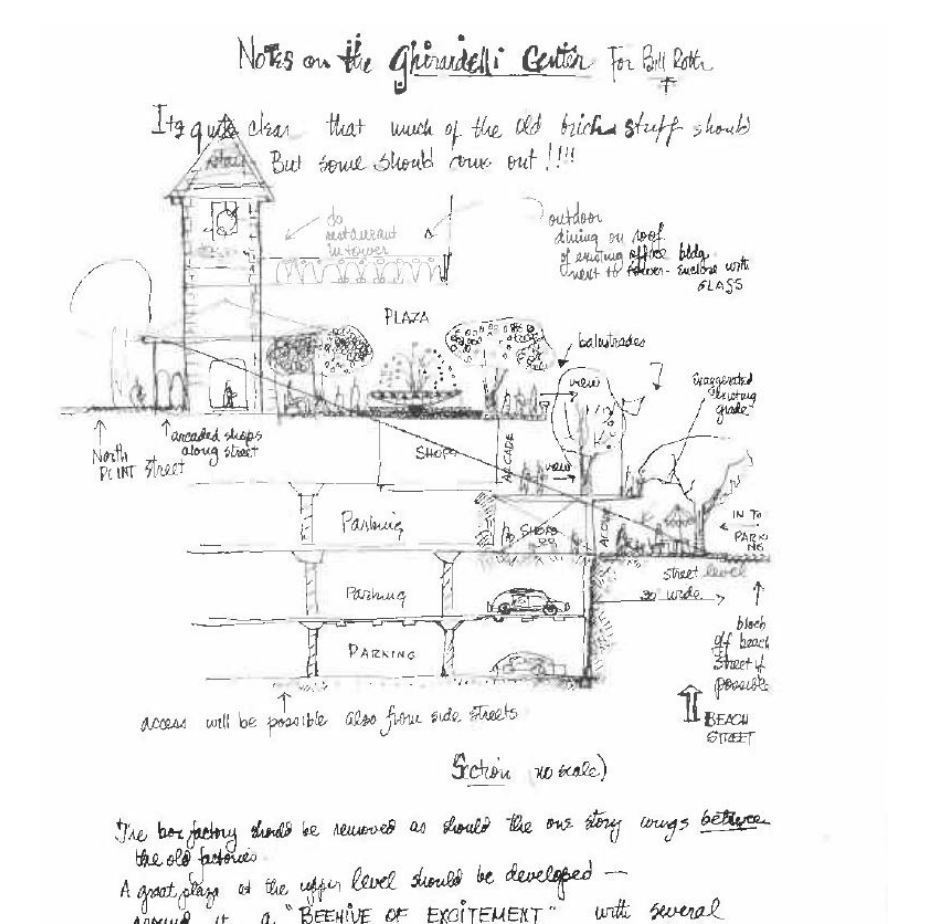 Notes on the Ghirardelli Center For Bill Roth
Its quite clear that much of the old brick stuff should
But some should come out !!!!
do
restaurant
in tower
outdoor
dining on roof
of existing office bldg.
next to tower - enclose with
GLASS
PLAZA
balustrades
view
Exaggerated
existing
grade
North
POINT Street
arcaded shops
along street
SHOPS
ARCADE
view
Parking
SHOPS
ARCADE
IN TO
PARKI
NG
street level
30' wide
Parking
block
off beach
Street if
possible
PARKING
access will be possible also from side streets
BEACH
STREET
Section (no scale)
The box factory should be removed as should the one story wings between
the old factories.
A great plaza at the upper level should be developed —
around it a "BEEHIVE OF EXCITEMENT" with several